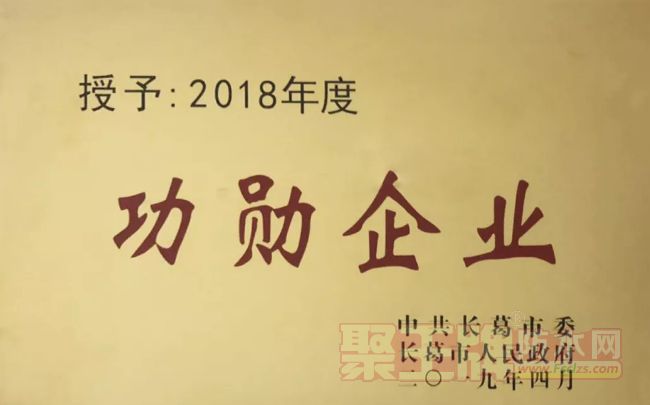 授予:2018年度
功勋企业
中共长葛市委
长葛市人民政府
二〇一九年四月
防水网
www.Fsclzs.com